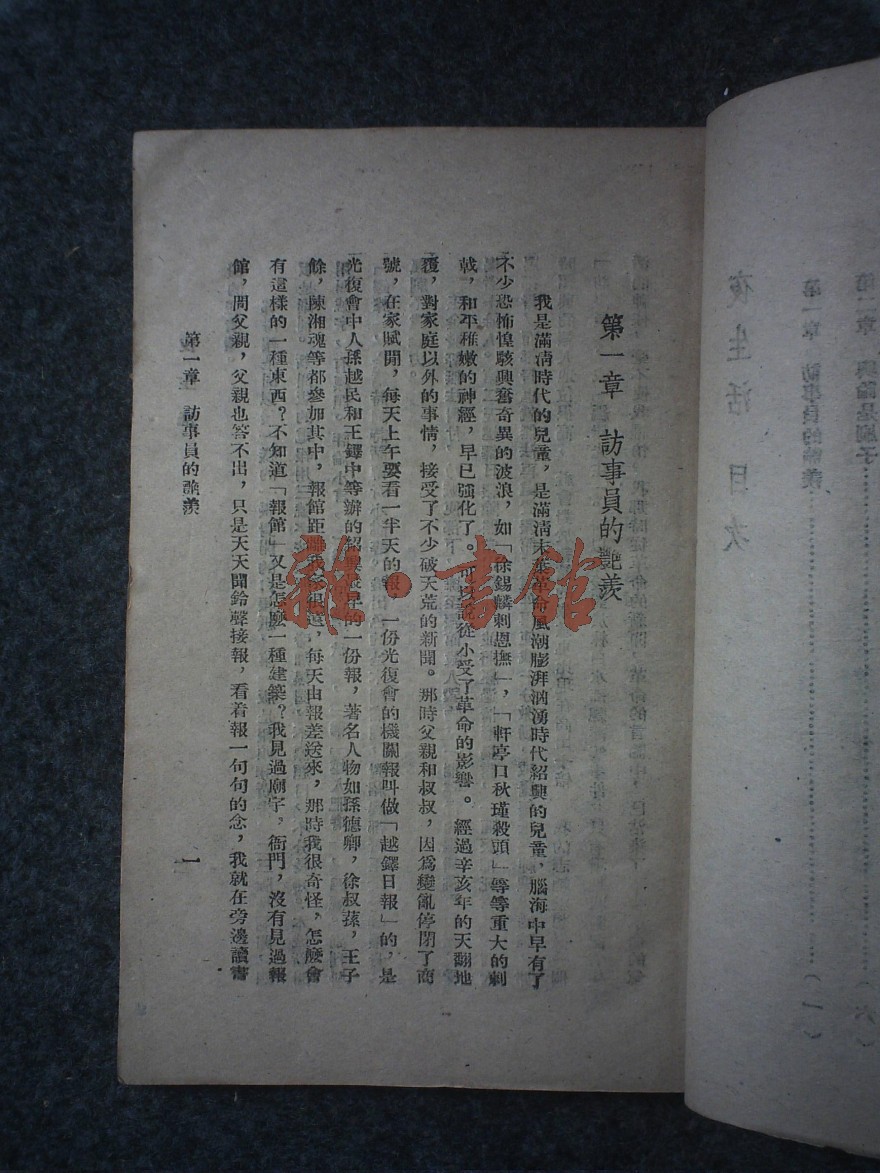 夜生活　目次
第一章　訪事員的艷羨……（一）
第二章　輿論是刷子……（六）
第一章　訪事員的艷羨
我是滿清時代的兒童，是滿清末葉革命風潮膨湃洶湧時代紹興的兒童，腦海中早有了
不少恐怖惶駭興奮奇異的波浪，如「徐錫麟刺恩撫」，「軒亭口秋瑾殺頭」等等重大的刺
戟，和平稚嫩的神經，早已強化了。可以說從小受了革命的影響。經過辛亥年的天翻地
覆，對家庭以外的事情，接受了不少破天荒的新聞。那時父親和叔叔，因為變亂停閉了商
號，在家賦閒，每天上午要看一半天的報，一份光復會的機關報叫做「越鐸日報」的，是
光復會中人孫越民和王鐸中等辦的紹興最早的一份報，著名人物如孫德卿，徐叔蓀，王子
餘，陳湘魂等都參加其中，報館距離我家很遠，每天由報差送來，那時我很奇怪，怎麼會
有這樣的一種東西？不知道「報館」又是怎麼一種建築？我見過廟宇，衙門，沒有見過報
館，問父親，父親也答不出，只是天天聞鈴聲接報，看着報一句句的念，我就在旁邊讀書
第一章　訪事員的艷羨
一
雜·書館